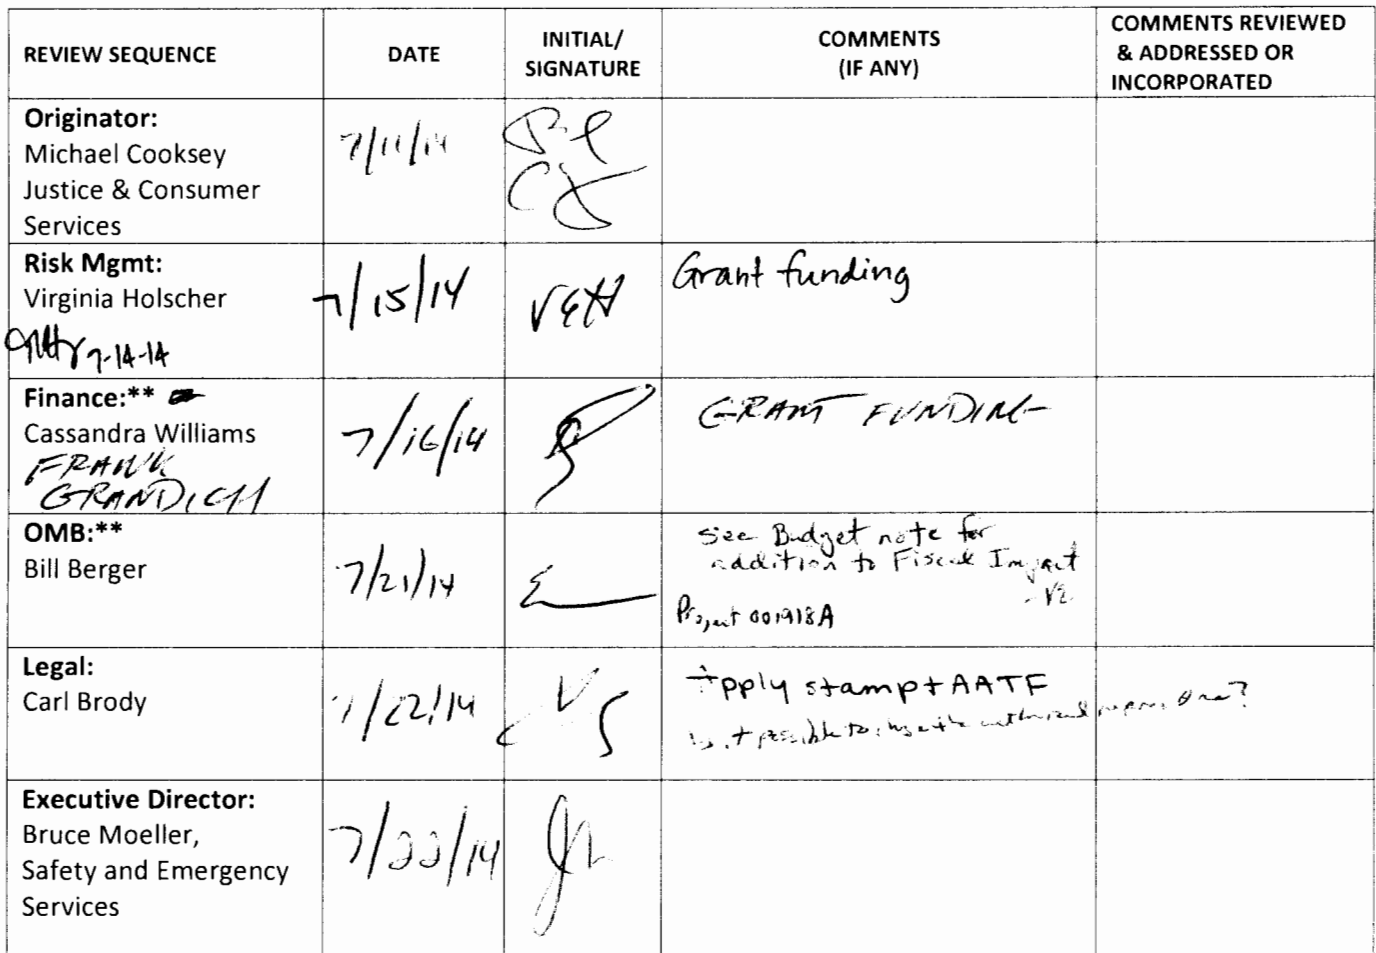 REVIEW SEQUENCE
DATE
INITIAL/
SIGNATURE
COMMENTS
(IF ANY)
COMMENTS REVIEWED
& ADDRESSED OR
INCORPORATED
Originator:
Michael Cooksey
Justice & Consumer
Services
7/11/14
Risk Mgmt:
Virginia Holscher
7-14-14
7/15/14
VEH
Grant funding
Finance:**
Cassandra Williams
FRANK
GRANDICH
7/16/14
GRANT FUNDING
OMB:**
Bill Berger
7/21/14
see Budget note for
addition to Fiscal Impact
Project 001918A
Legal:
Carl Brody
7/22/14
Apply stamp + AATF
Executive Director:
Bruce Moeller,
Safety and Emergency
Services
7/22/14